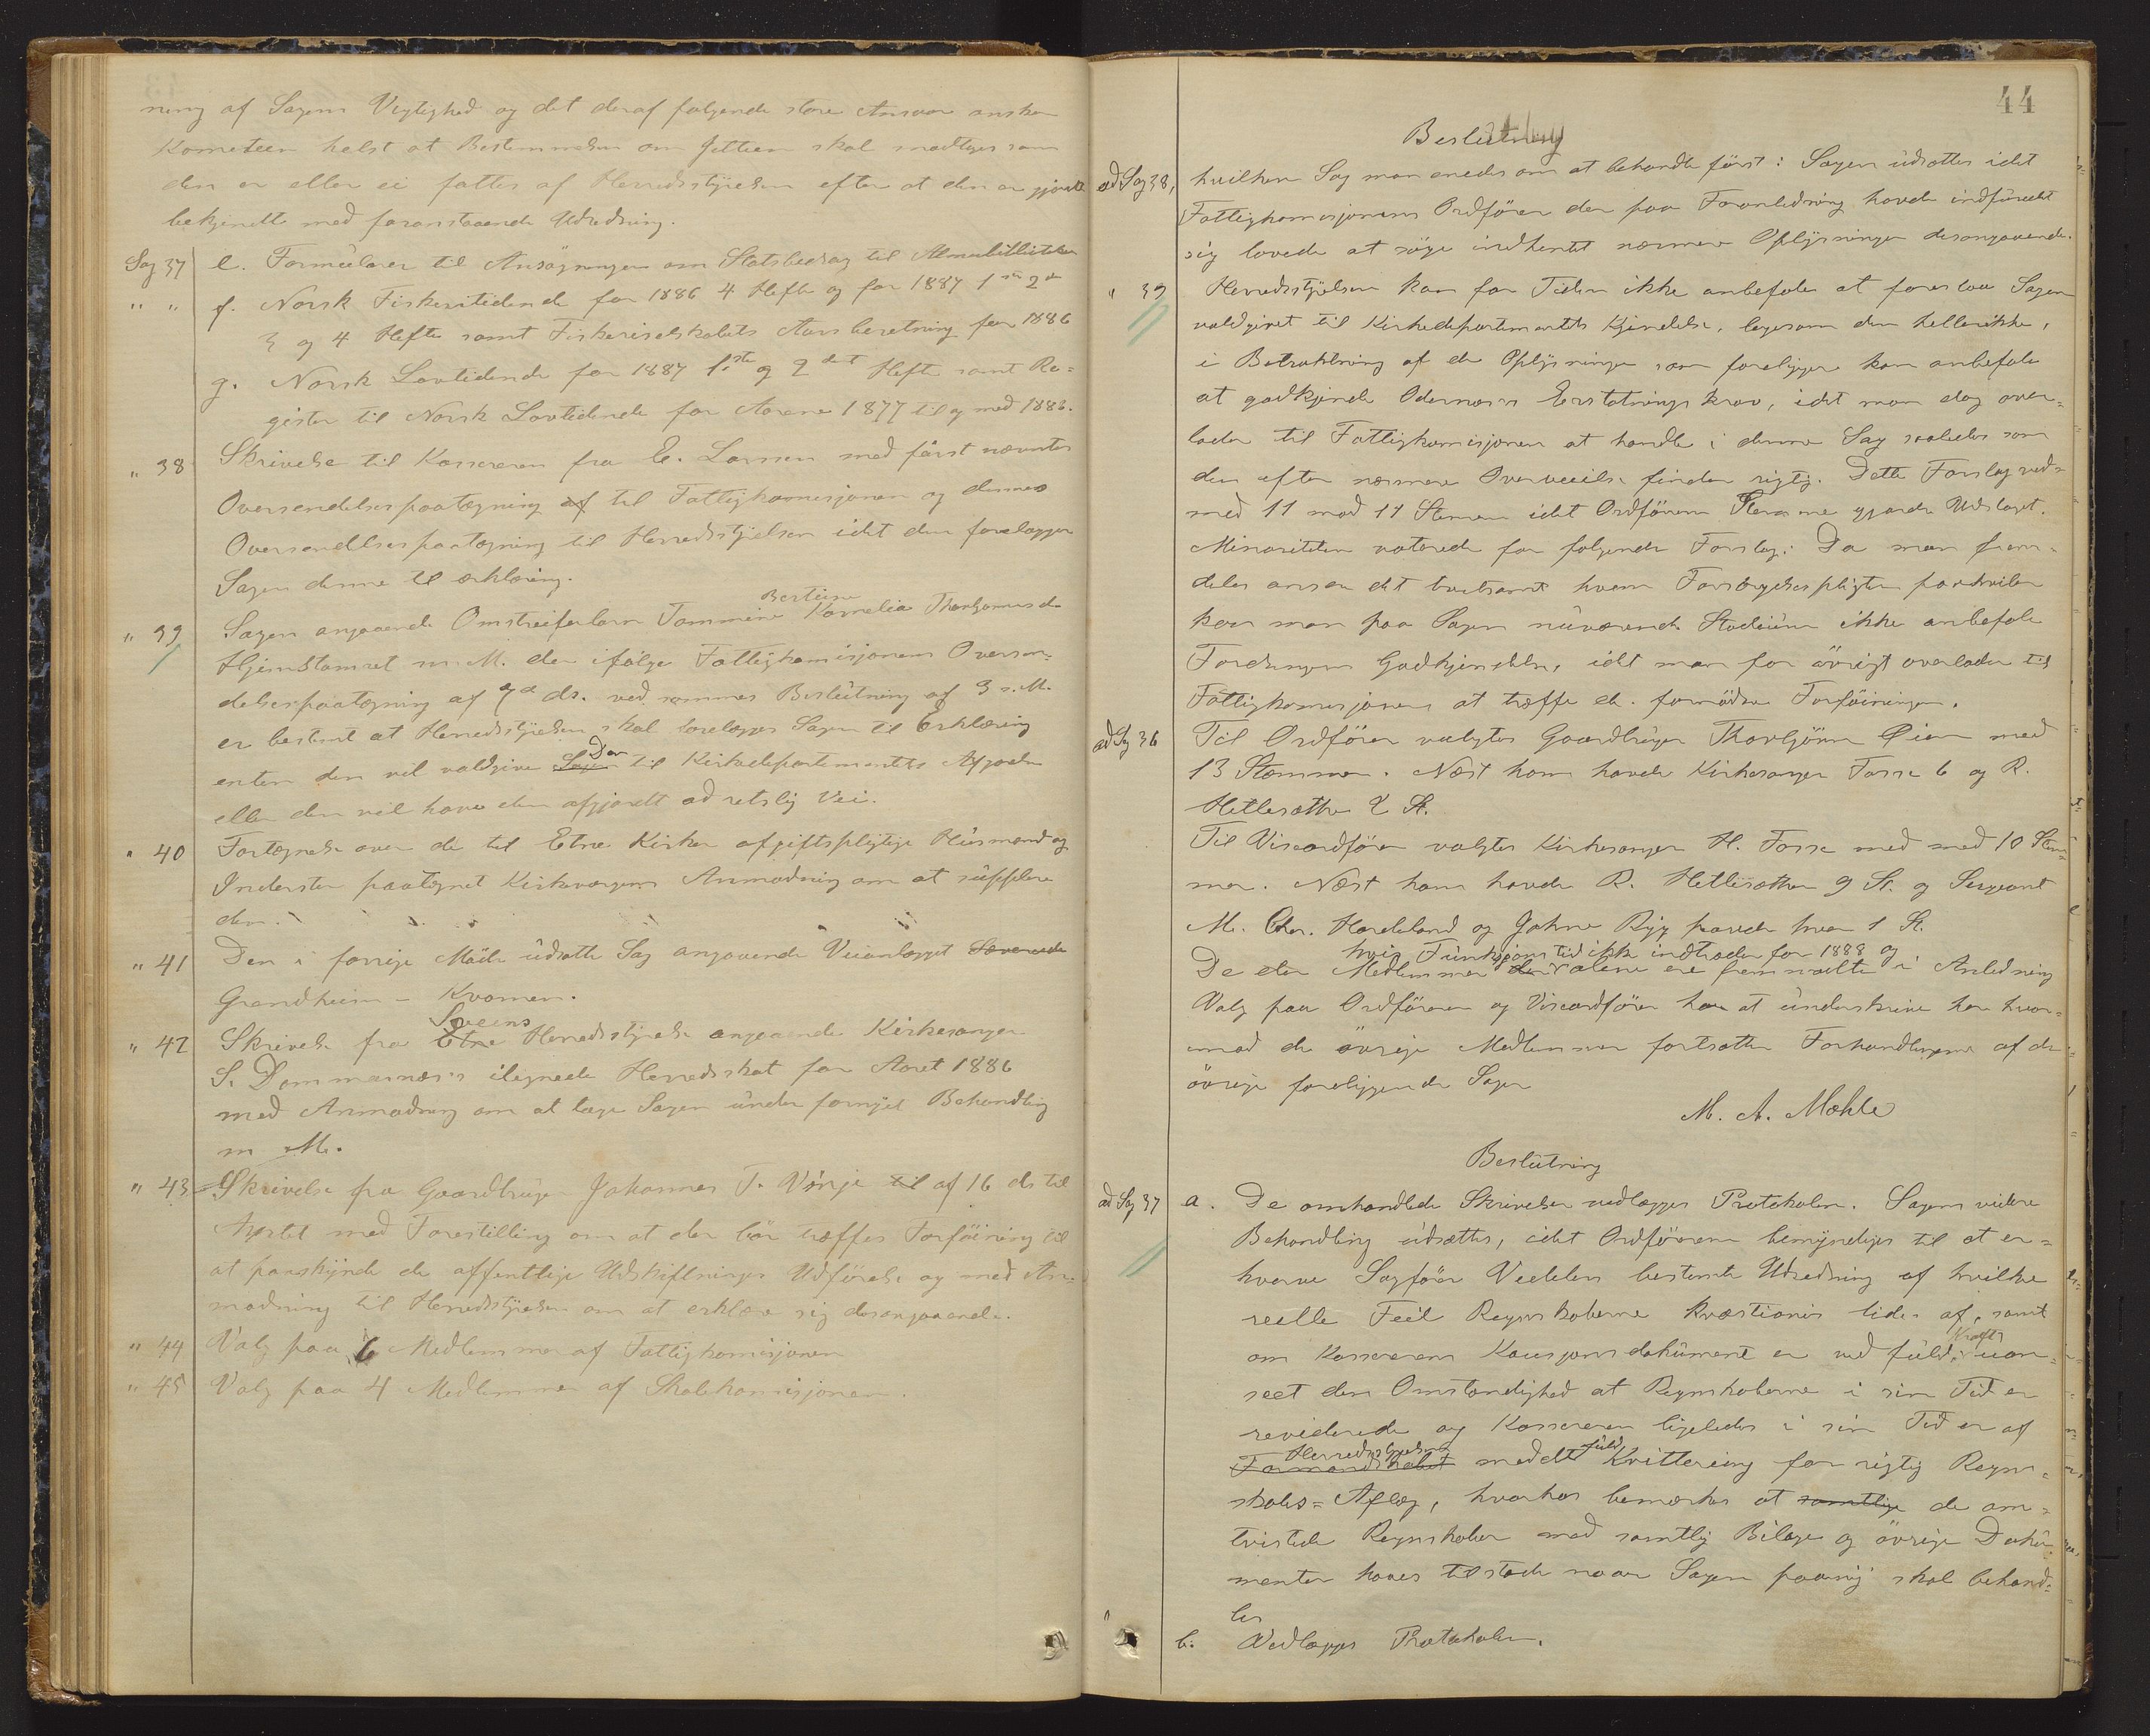 ning af Sagens Vigtighed og det deraf følgende store Ansvar ønsker
Kometeen helst at Bestemmelsen om Jettien skal modtages som
den er eller ei fattes af Herredsstyrelsen efter at den er gjort
bekjendt med foranstaaende Udredning.
Sag 37 e. Formularer til Ansøgningen om Statsbedrag til
" " f. Norsk Fiskeritidende for 1886 4 Hefte og for 1887 1ste 2de
3 og 4 Hefte samt Fiskeriselskabets Aarsberetning for 1886
g. Norsk Lovtidende for 1887 1ste og 2det Hefte samt Re=
gister til Norsk Lovtidende for Aarene 1877 til og med 1886.
" 38 Skrivelse til Kassereren fra E. Larsen med først nævntes
Oversendelsespaategning af til Fattigkomisjonen og dennes
Oversendelsespaategning til Herredsstyrelsen idet den forelægger
Sagen denne til erklæring.
" 39 Sagen angaaende Omstreiferbarn Tommine Bertine Kornelia Thorbjørnsd.
Hjemstamret m.M. der ifølge Fattigkomisjonens Oversen=
delsespaategning af 7de ds. ved sammes Beslutning af 3 s.M.
er bestemt at Herredsstyrelsen skal forelægges Sagen til Erklæring
enten den vil voldgive Sagen Den til Kirkedepartementets Afgjørelse
eller den vil have den afgjordt ad retslig Vei.
" 40 Fortegnelse over de til Etne Kirke afgiftspligtige Husmænd og
Inderster paategnet Kirkeværgens Anmodning om at supplere
den.
" 41 Den i forrige Møde udsatte Sag angaaende Veianlægget
Grandheim - Kvamen.
" 42 Skrivelse fra Etne Sveens Herredsstyrelse angaaende Kirkesanger
S. Dommersnæs's ilignede Herredsskat for Aaret 1886
med Anmodning om at tage Sagen under fornyet Behandling
m M.
" 43 Skrivelse fra Gaardbruger Johannes T. Vinje til af 16 ds til
Amtet med Forestilling om at der bør træffes Forføining til
at paaskynde de offentlige Udskiftningers Udførelse og med An=
modning til Herredsstyrelsen om at erklære sig desangaaende.
" 44 Valg paa 6 Medlemmer af Fattigkomisjonen
" 45 Valg paa 4 Medlemmer af Skolekomisjonen.
44
Beslutning
ad Sag 38, hvilken Sag man enedes om at behandle først: Sagen udsættes idet
Fattigkomisjonens Ordfører der paa Foranledning havde indfundet
sig lovede at søge indhentet nærmere Oplysninger desangaaende.
" 39 Herredsstyrelsen kan for Tiden ikke anbefale at foreslaa Sagen
voldgivet til Kirkedepartementets Kjendelse, ligesom den hellerikke,
i Betragtning af de Oplysninger som foreligger kan anbefale
at godkjende Odernæs's Erstatningskrav, idet man dog over=
lader til Fattigkomisjonen at handle i denne Sag saaledes som
den efter nærmere Overveielse finder rigtig. Dette Forslag ved=
med 11 mod 11 Stemmer idet Ordførerens Stemme gjorde Udslaget.
Minoriteten voterede for følgende Forslag: Da man frem=
deles anser det tvilsomt hvem Forsørgelsespligten paahviler
kan man paa Sagens nuværende Stadium ikke anbefale
Fordringens Godkjendelse, idet man for øvrigt overlader til
Fattigkomisjonen at træffe de fornødne Forføininger.
ad Sag 36 Til Ordfører valgtes Gaardbruger Thorbjørn Øien med
13 Stemmer. Næst ham havde Kirkesanger Fosse 6 og R.
Hetlesæther 2 St.
Til Viseordfører valgtes Kirkesanger H. Fosse med med 10 Stem=
mer. Næst ham havde R. Hetlesæther 9 St. og Sergeant
M. Chr. Hardeland og Johne Rygg havde hver 1 St.
hvis Funksjonstid ikke indtræder før 1888 og
De der Medlemmer der alene ere fremmødte i Anledning
Valg paa Ordføreren og Viseordfører har at underskrive her hvor=
imod de øvrige Medlemmer fortsætter Forhandlingerne af de
øvrige foreliggende Sager
M. A. Mæhle
Beslutning
ad Sag 37 a. De omhandlede Skrivelser vedlægges Protokolen. Sagens videre
Behandling udsættes, idet Ordføreren bemyndiges til at er=
hverve Sagfører Vedelers bestemte Udredning af hvilke
reelle Feil Regnskaberne kvæstionis lider af, samt
om Kassererens Kausjonsdokument er ved fuld Kraft uan=
seet den Omstændighed at Regnskaberne i sin Tid er
reviderede og Kassereren ligeledes i sin Tid er af
Formandskabet Herredsstyrelsen meddelt fuld Kvittering for rigtig Regn=
skabs=Aflæg, hvorhos bemærkes at samtlige de om=
tvistede Regnskaber med samtlig Bilage og øvrige Doku=
menter haves tilstede naar Sagen paany skal behand=
les
b. Vedlægges Protokolen.